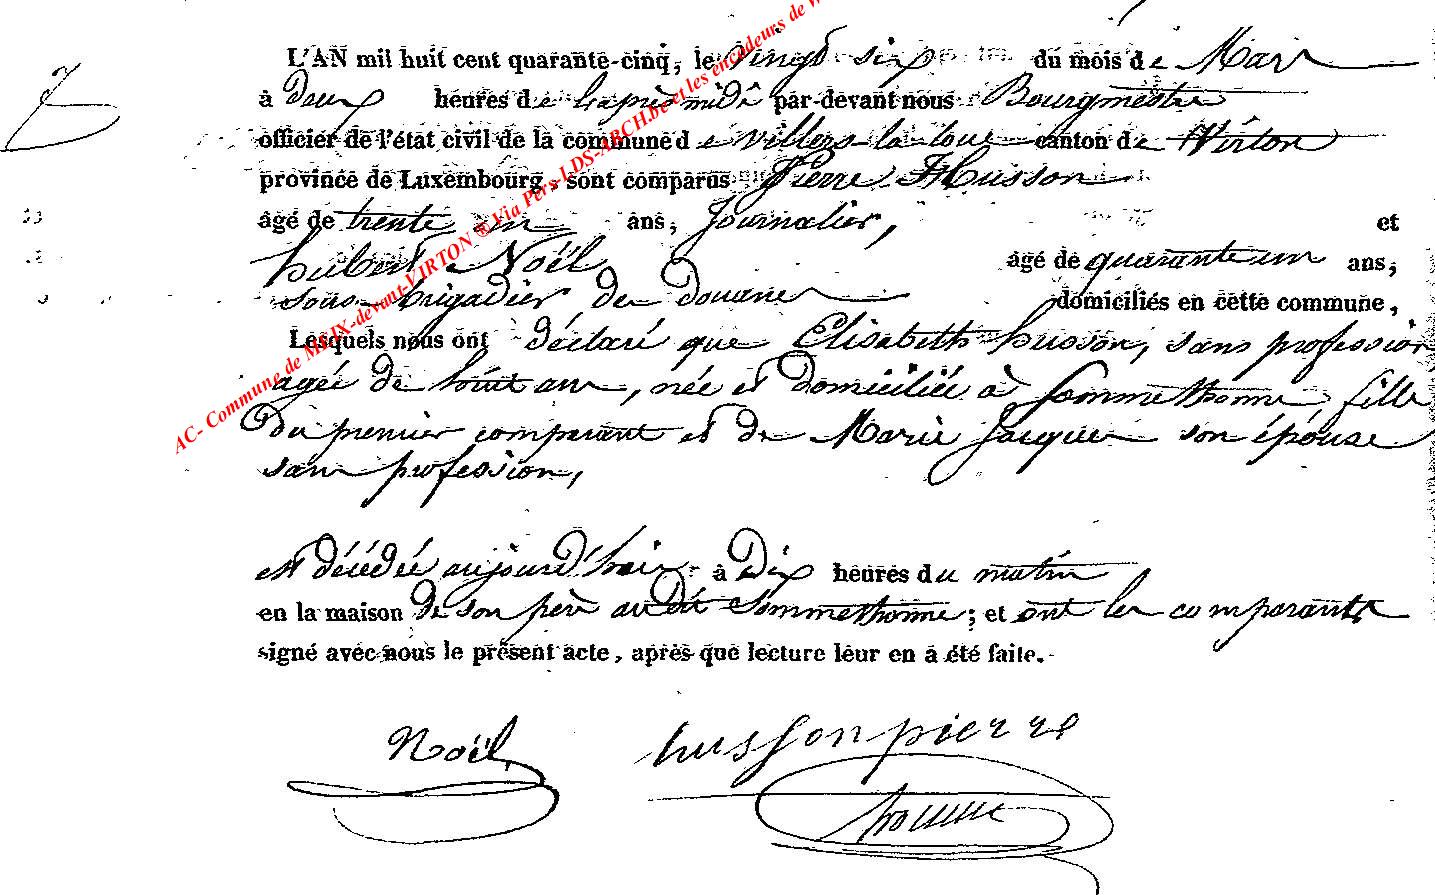 7
L'AN mil huit cent quarante-cinq, le Vingt six du mois de Mars
à deux heures de l'après midi par-devant nous Bourgmestre
officier de l'état civil de la commune de Villers-la-loue canton de Virton
province de Luxembourg, sont comparus Pierre Husson
âgé de trente un ans, Journalier, et
hubert Noël âgé de quarante un ans,
sous-brigadier de Douane domiciliés en cette commune,
Lesquels nous ont déclaré que Elisabeth husson, sans profession
agée de huit ans, née et domiciliée à Sommethonne, fille
du premier comparant et de Marie Jacques son épouse
sans profession,
est décédée aujourd'hui à Dix heures du matin
en la maison de son père au dit Sommethonne; et ont les comparants
signé avec nous le présent acte, après que lecture leur en a été faite.
Noël husson pierre
AC- Commune de MEIX-devant-VIRTON ® Via Pers-LDS-ARCH.be et les encodeurs de